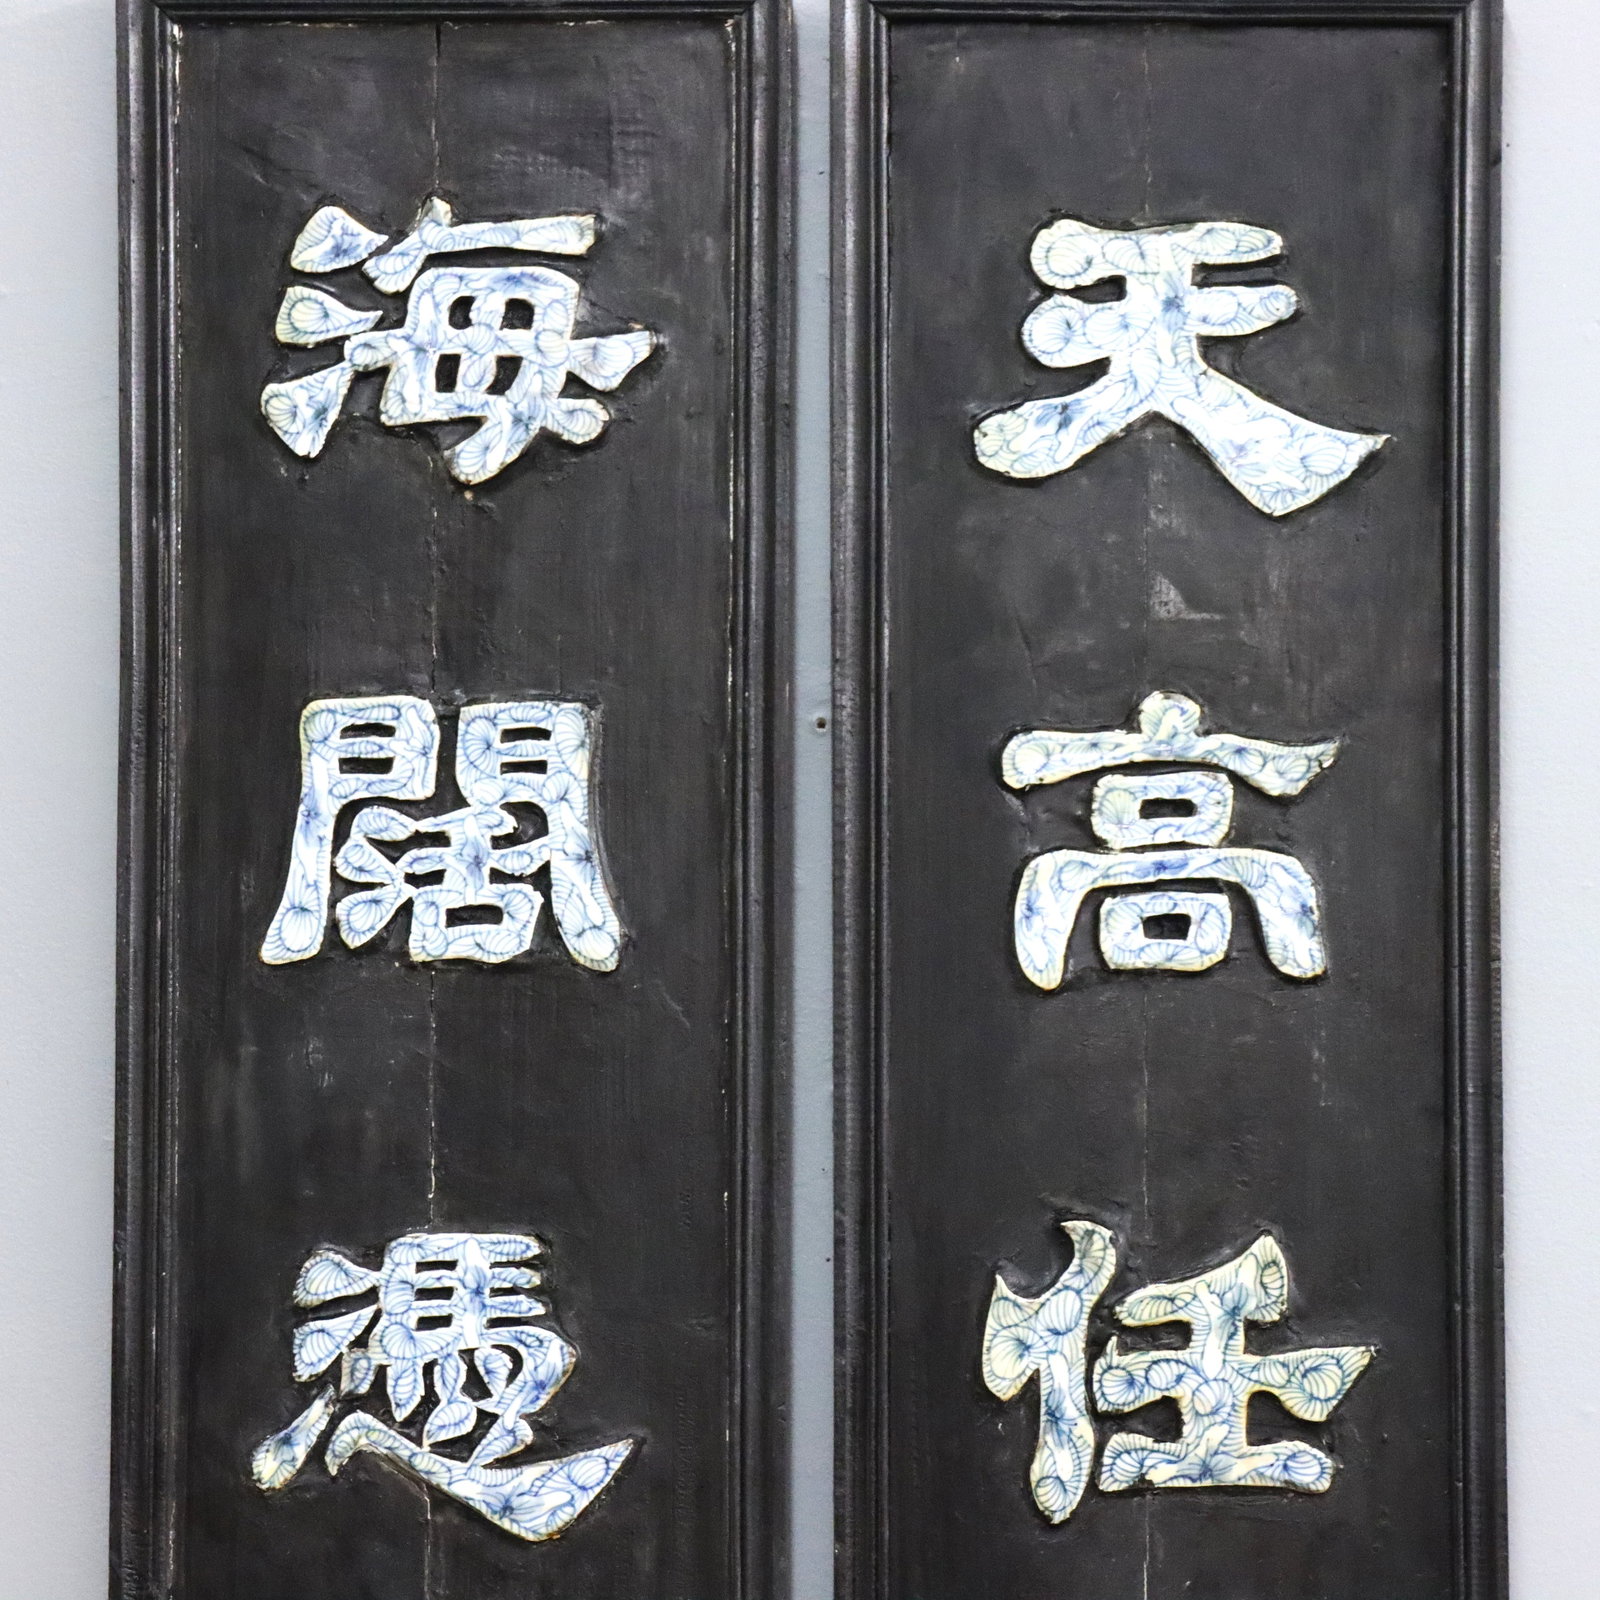 天高任
海闊憑